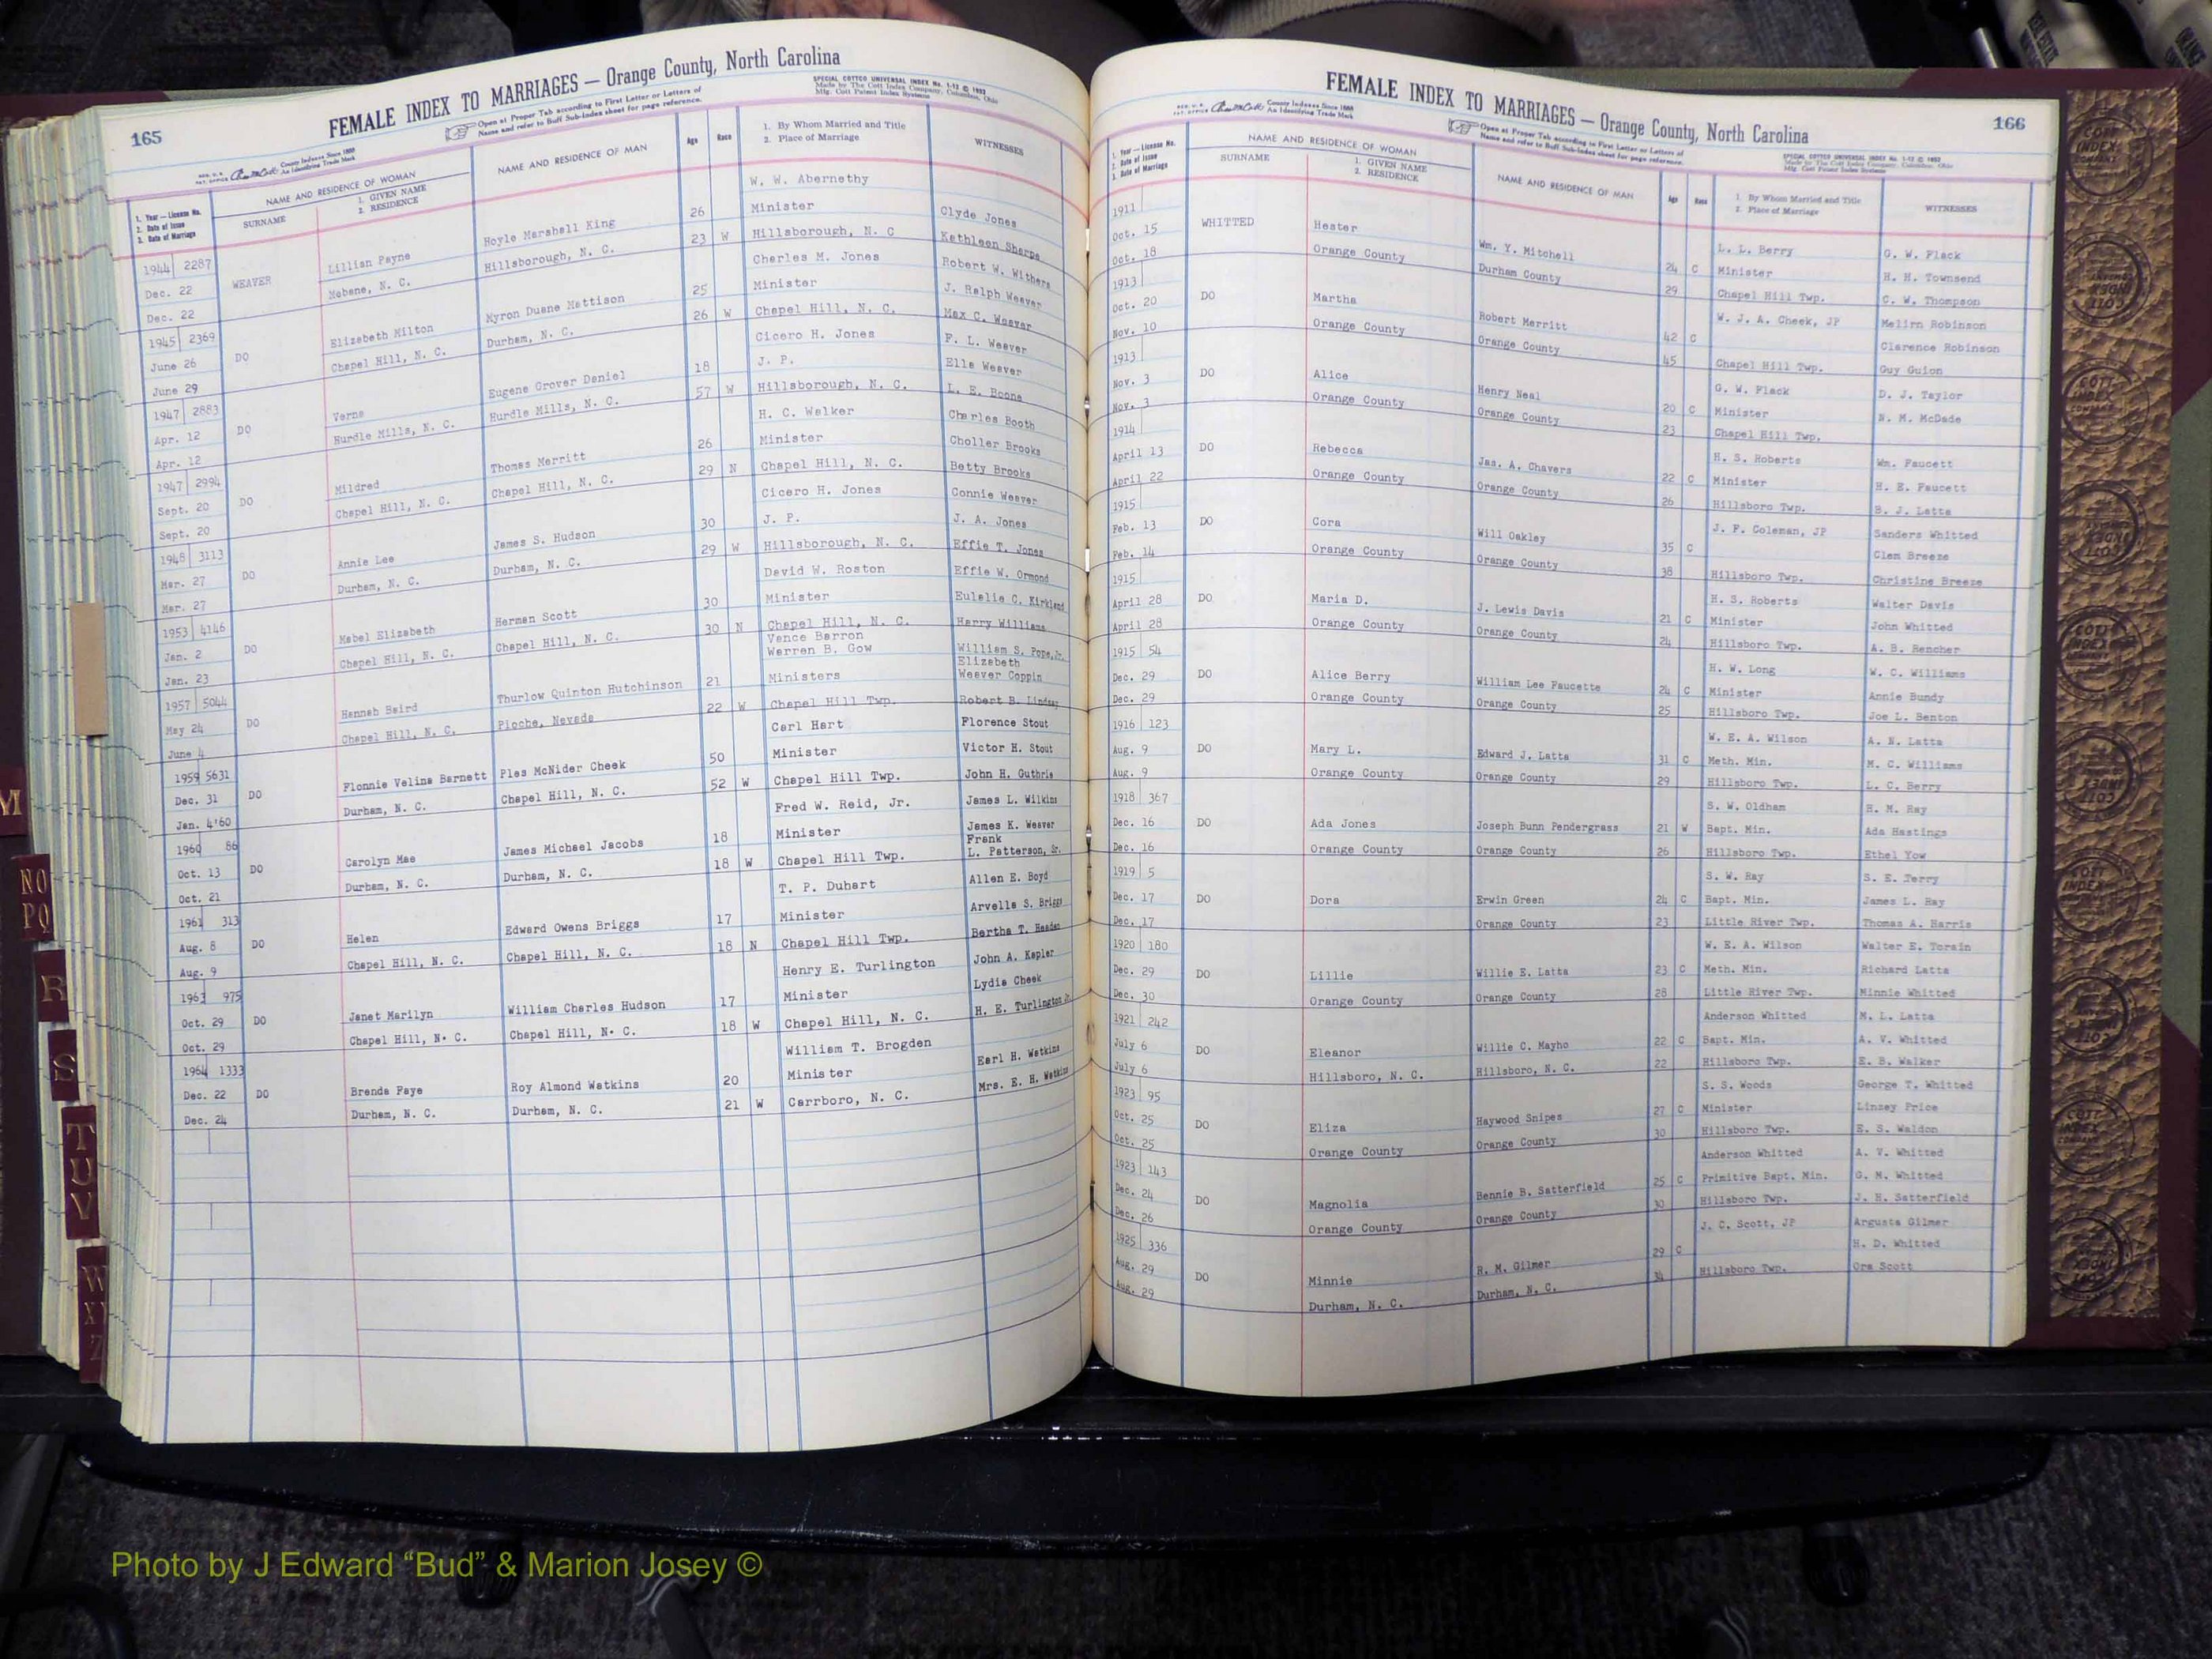 165
FEMALE INDEX TO MARRIAGES — Orange County, North Carolina
Open at Proper Tab according to First Letter or Letters of
Name and refer to Buff Sub-Index sheet for page reference.
SPECIAL COTTCO UNIVERSAL INDEX No. 1-12 ©
Made by The Cott Index Company, Columbus, Ohio
Mfg. Cott Patent Index Systems
County Indexes Since 1888
An Identifying Trade Mark
1. Year — License No.
2. Date of Issue
3. Date of Marriage
NAME AND RESIDENCE OF WOMAN
SURNAME
1. GIVEN NAME
2. RESIDENCE
NAME AND RESIDENCE OF MAN
Age
Race
1. By Whom Married and Title
2. Place of Marriage
WITNESSES
1944 2287 WEAVER Lillian Payne Hoyle Marshall King 26 W. W. Abernethy
Dec. 22 Mebane, N. C. Hillsborough, N. C. 23 W Minister Clyde Jones
Dec. 22 Hillsborough, N. C Kathleen Sharpe
1945 2369 DO Elizabeth Milton Myron Duane Mattison 25 Charles M. Jones Robert W. Withers
June 26 Chapel Hill, N. C. Durham, N. C. 26 W Minister J. Ralph Weaver
June 29 Chapel Hill, N. C. Max C. Weaver
1947 2883 DO Verna Eugene Grover Daniel 18 Cicero H. Jones F. L. Weaver
Apr. 12 Hurdle Mills, N. C. Hurdle Mills, N. C. 57 W J. P. Elle Weaver
Apr. 12 Hillsborough, N. C. L. E. Boone
1947 2994 DO Mildred Thomas Merritt 26 H. C. Walker Charles Booth
Sept. 20 Chapel Hill, N. C. Chapel Hill, N. C. 29 N Minister Choller Brooks
Sept. 20 Chapel Hill, N. C. Betty Brooks
1948 3113 DO Annie Lee James S. Hudson 30 Cicero H. Jones Connie Weaver
Mar. 27 Durham, N. C. Durham, N. C. 29 W J. P. J. A. Jones
Mar. 27 Hillsborough, N. C. Effie T. Jones
1953 4146 DO Mabel Elizabeth Herman Scott 30 David W. Roston Effie W. Ormond
Jan. 2 Chapel Hill, N. C. Chapel Hill, N. C. 30 N Minister Eulelie C. Kirkland
Jan. 23 Chapel Hill, N. C. Harry Williams
1957 5044 DO Hannah Baird Thurlow Quinton Hutchinson 21 Vance Barron Warren B. Gow William S. Pope, Jr.
May 24 Chapel Hill, N. C. Pioche, Nevada 22 W Ministers Elizabeth Weaver Coppin
June 4 Chapel Hill Twp. Robert B. Lindsay
1959 5631 DO Flonnie Velina Barnett Ples McNider Cheek 50 Carl Hart Florence Stout
Dec. 31 Durham, N. C. Chapel Hill, N. C. 52 W Minister Victor H. Stout
Jan. 4'60 Chapel Hill Twp. John H. Guthrie
1960 86 DO Carolyn Mae James Michael Jacobs 18 Fred W. Reid, Jr. James L. Wilkins
Oct. 13 Durham, N. C. Durham, N. C. 18 W Minister James K. Weaver
Oct. 21 Chapel Hill Twp. Frank L. Patterson, Sr.
1961 313 DO Helen Edward Owens Briggs 17 T. P. Duhart Allen E. Boyd
Aug. 8 Chapel Hill, N. C. Chapel Hill, N. C. 18 N Minister Arvelle S. Briggs
Aug. 9 Chapel Hill Twp. Bertha T. Headen
1963 975 DO Janet Marilyn William Charles Hudson 17 Henry E. Turlington John A. Kepler
Oct. 29 Chapel Hill, N. C. Chapel Hill, N. C. 18 W Minister Lydia Cheek
Oct. 29 Chapel Hill, N. C. H. E. Turlington Jr.
1964 1333 DO Brenda Faye Roy Almond Watkins 20 William T. Brogden Earl H. Watkins
Dec. 22 Durham, N. C. Durham, N. C. 21 W Minister Mrs. E. H. Watkins
Dec. 24 Carrboro, N. C.
166
FEMALE INDEX TO MARRIAGES — Orange County, North Carolina
County Indexes Since 1888
An Identifying Trade Mark
Open at Proper Tab according to First Letter or Letters of
Name and refer to Buff Sub-Index sheet for page reference.
SPECIAL COTTCO UNIVERSAL INDEX No. 1-12 ©
Made by The Cott Index Company, Columbus, Ohio
Mfg. Cott Patent Index Systems
1. Year — License No.
2. Date of Issue
3. Date of Marriage
NAME AND RESIDENCE OF WOMAN
SURNAME
1. GIVEN NAME
2. RESIDENCE
NAME AND RESIDENCE OF MAN
Age
Race
1. By Whom Married and Title
2. Place of Marriage
WITNESSES
1911 WHITTED Hester Wm. Y. Mitchell 24 C L. L. Berry G. W. Flack
Oct. 15 Orange County Durham County 29 Minister H. H. Townsend
Oct. 18 Chapel Hill Twp. C. W. Thompson
1913 DO Martha Robert Merritt 42 C W. J. A. Cheek, JP Melirn Robinson
Oct. 20 Orange County Orange County 45 Clarence Robinson
Nov. 10 Chapel Hill Twp. Guy Guion
1913 DO Alice Henry Neal 20 C G. W. Flack D. J. Taylor
Nov. 3 Orange County Orange County 23 Minister N. M. McDade
Nov. 3 Chapel Hill Twp.
1914 DO Rebecca Jas. A. Chavers 22 C H. S. Roberts Wm. Faucett
April 13 Orange County Orange County 26 Minister H. E. Faucett
April 22 Hillsboro Twp. B. J. Latta
1915 DO Cora Will Oakley 35 C J. F. Coleman, JP Sanders Whitted
Feb. 13 Orange County Orange County 38 Clem Breeze
Feb. 14 Hillsboro Twp. Christine Breeze
1915 DO Maria D. J. Lewis Davis 21 C H. S. Roberts Walter Davis
April 28 Orange County Orange County 24 Minister John Whitted
April 28 Hillsboro Twp. A. B. Rencher
1915 54 DO Alice Berry William Lee Faucette 24 C H. W. Long W. C. Williams
Dec. 29 Orange County Orange County 25 Minister Annie Bundy
Dec. 29 Hillsboro Twp. Joe L. Benton
1916 123 DO Mary L. Edward J. Latta 31 C W. E. A. Wilson A. N. Latta
Aug. 9 Orange County Orange County 29 Meth. Min. M. C. Williams
Aug. 9 Hillsboro Twp. L. C. Berry
1918 367 DO Ada Jones Joseph Bunn Pendergrass 21 W S. W. Oldham H. M. Ray
Dec. 16 Orange County Orange County 26 Bapt. Min. Ada Hastings
Dec. 16 Hillsboro Twp. Ethel Yow
1919 5 DO Dora Erwin Green 24 C S. W. Ray S. E. Terry
Dec. 17 Orange County 23 Bapt. Min. James L. Ray
Dec. 17 Little River Twp. Thomas A. Harris
1920 180 DO Lillie Willie E. Latta 23 C W. E. A. Wilson Walter E. Torain
Dec. 29 Orange County Orange County 28 Meth. Min. Richard Latta
Dec. 30 Little River Twp. Minnie Whitted
1921 242 DO Eleanor Willie C. Mayho 22 C Anderson Whitted M. L. Latta
July 6 Hillsboro, N. C. Hillsboro, N. C. 22 Bapt. Min. A. V. Whitted
July 6 Hillsboro Twp. E. B. Walker
1923 95 DO Eliza Haywood Snipes 27 C S. S. Woods George T. Whitted
Oct. 25 Orange County Orange County 30 Minister Linzey Price
Oct. 25 Hillsboro Twp. E. S. Waldon
1923 143 DO Magnolia Bennie B. Satterfield 25 C Anderson Whitted A. V. Whitted
Dec. 24 Orange County Orange County 30 Primitive Bapt. Min. G. M. Whitted
Dec. 26 Hillsboro Twp. J. H. Satterfield
1925 336 DO Minnie R. M. Gilmer 29 C J. C. Scott, JP Argusta Gilmer
Aug. 29 Durham, N. C. Durham, N. C. 34 H. D. Whitted
Aug. 29 Hillsboro Twp. Ora Scott
M
NO
PQ
R
S
T
U
V
W
XY
Z
Photo by J Edward “Bud” & Marion Josey ©